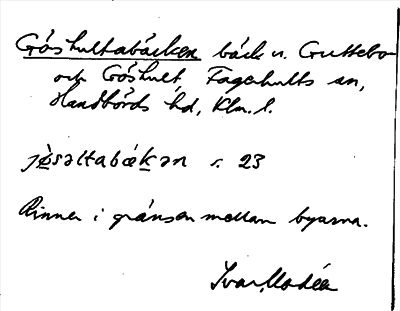 Göshultabäcken bäck u. Guttebo
och Göshult, Fagerhults sn,
Handbörds hd, Klm. l.
jø̀səltabækən s. 23
Rinner i gränsen mellan byarna.
Ivar Modéer